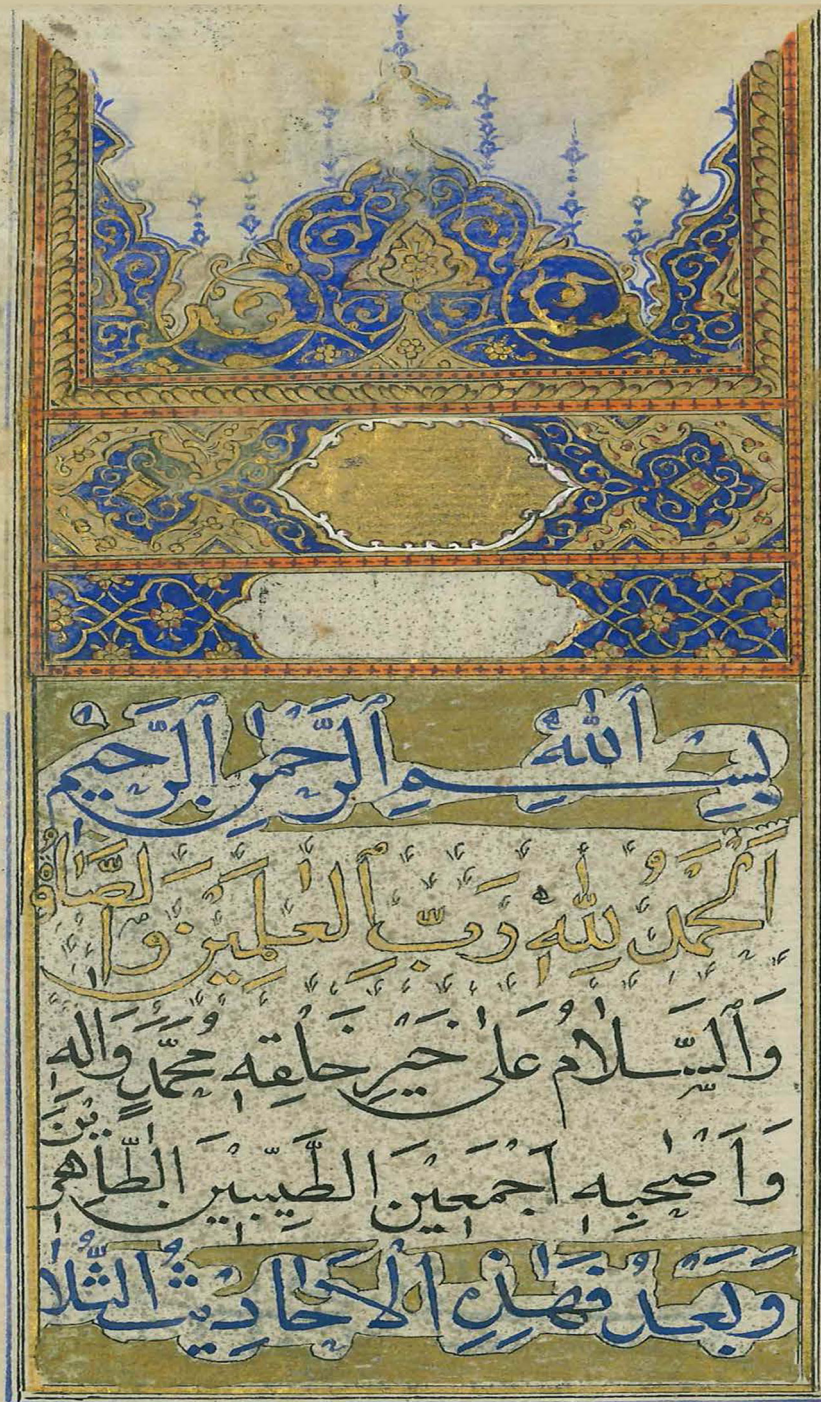 بِسْمِ ٱللّٰهِ ٱلرَّحْمٰنِ ٱلرَّحِيْمِ
اَلْحَمْدُ لِلّٰهِ رَبِّ ٱلْعٰلَمِيْنَ وَالصَّلٰوةُ
وَٱلسَّلَامُ عَلٰى خَيْرِ خَلْقِهٖ مُحَمَّدٍ وَاٰلِهٖ
وَاَصْحٰبِهٖ اَجْمَعِيْنَ الطَّيِّبِيْنَ الطَّاهِرِيْنَ
وَبَعْدُ فَهٰذِهِ الْاَحَادِيْثُ الثَّلَا